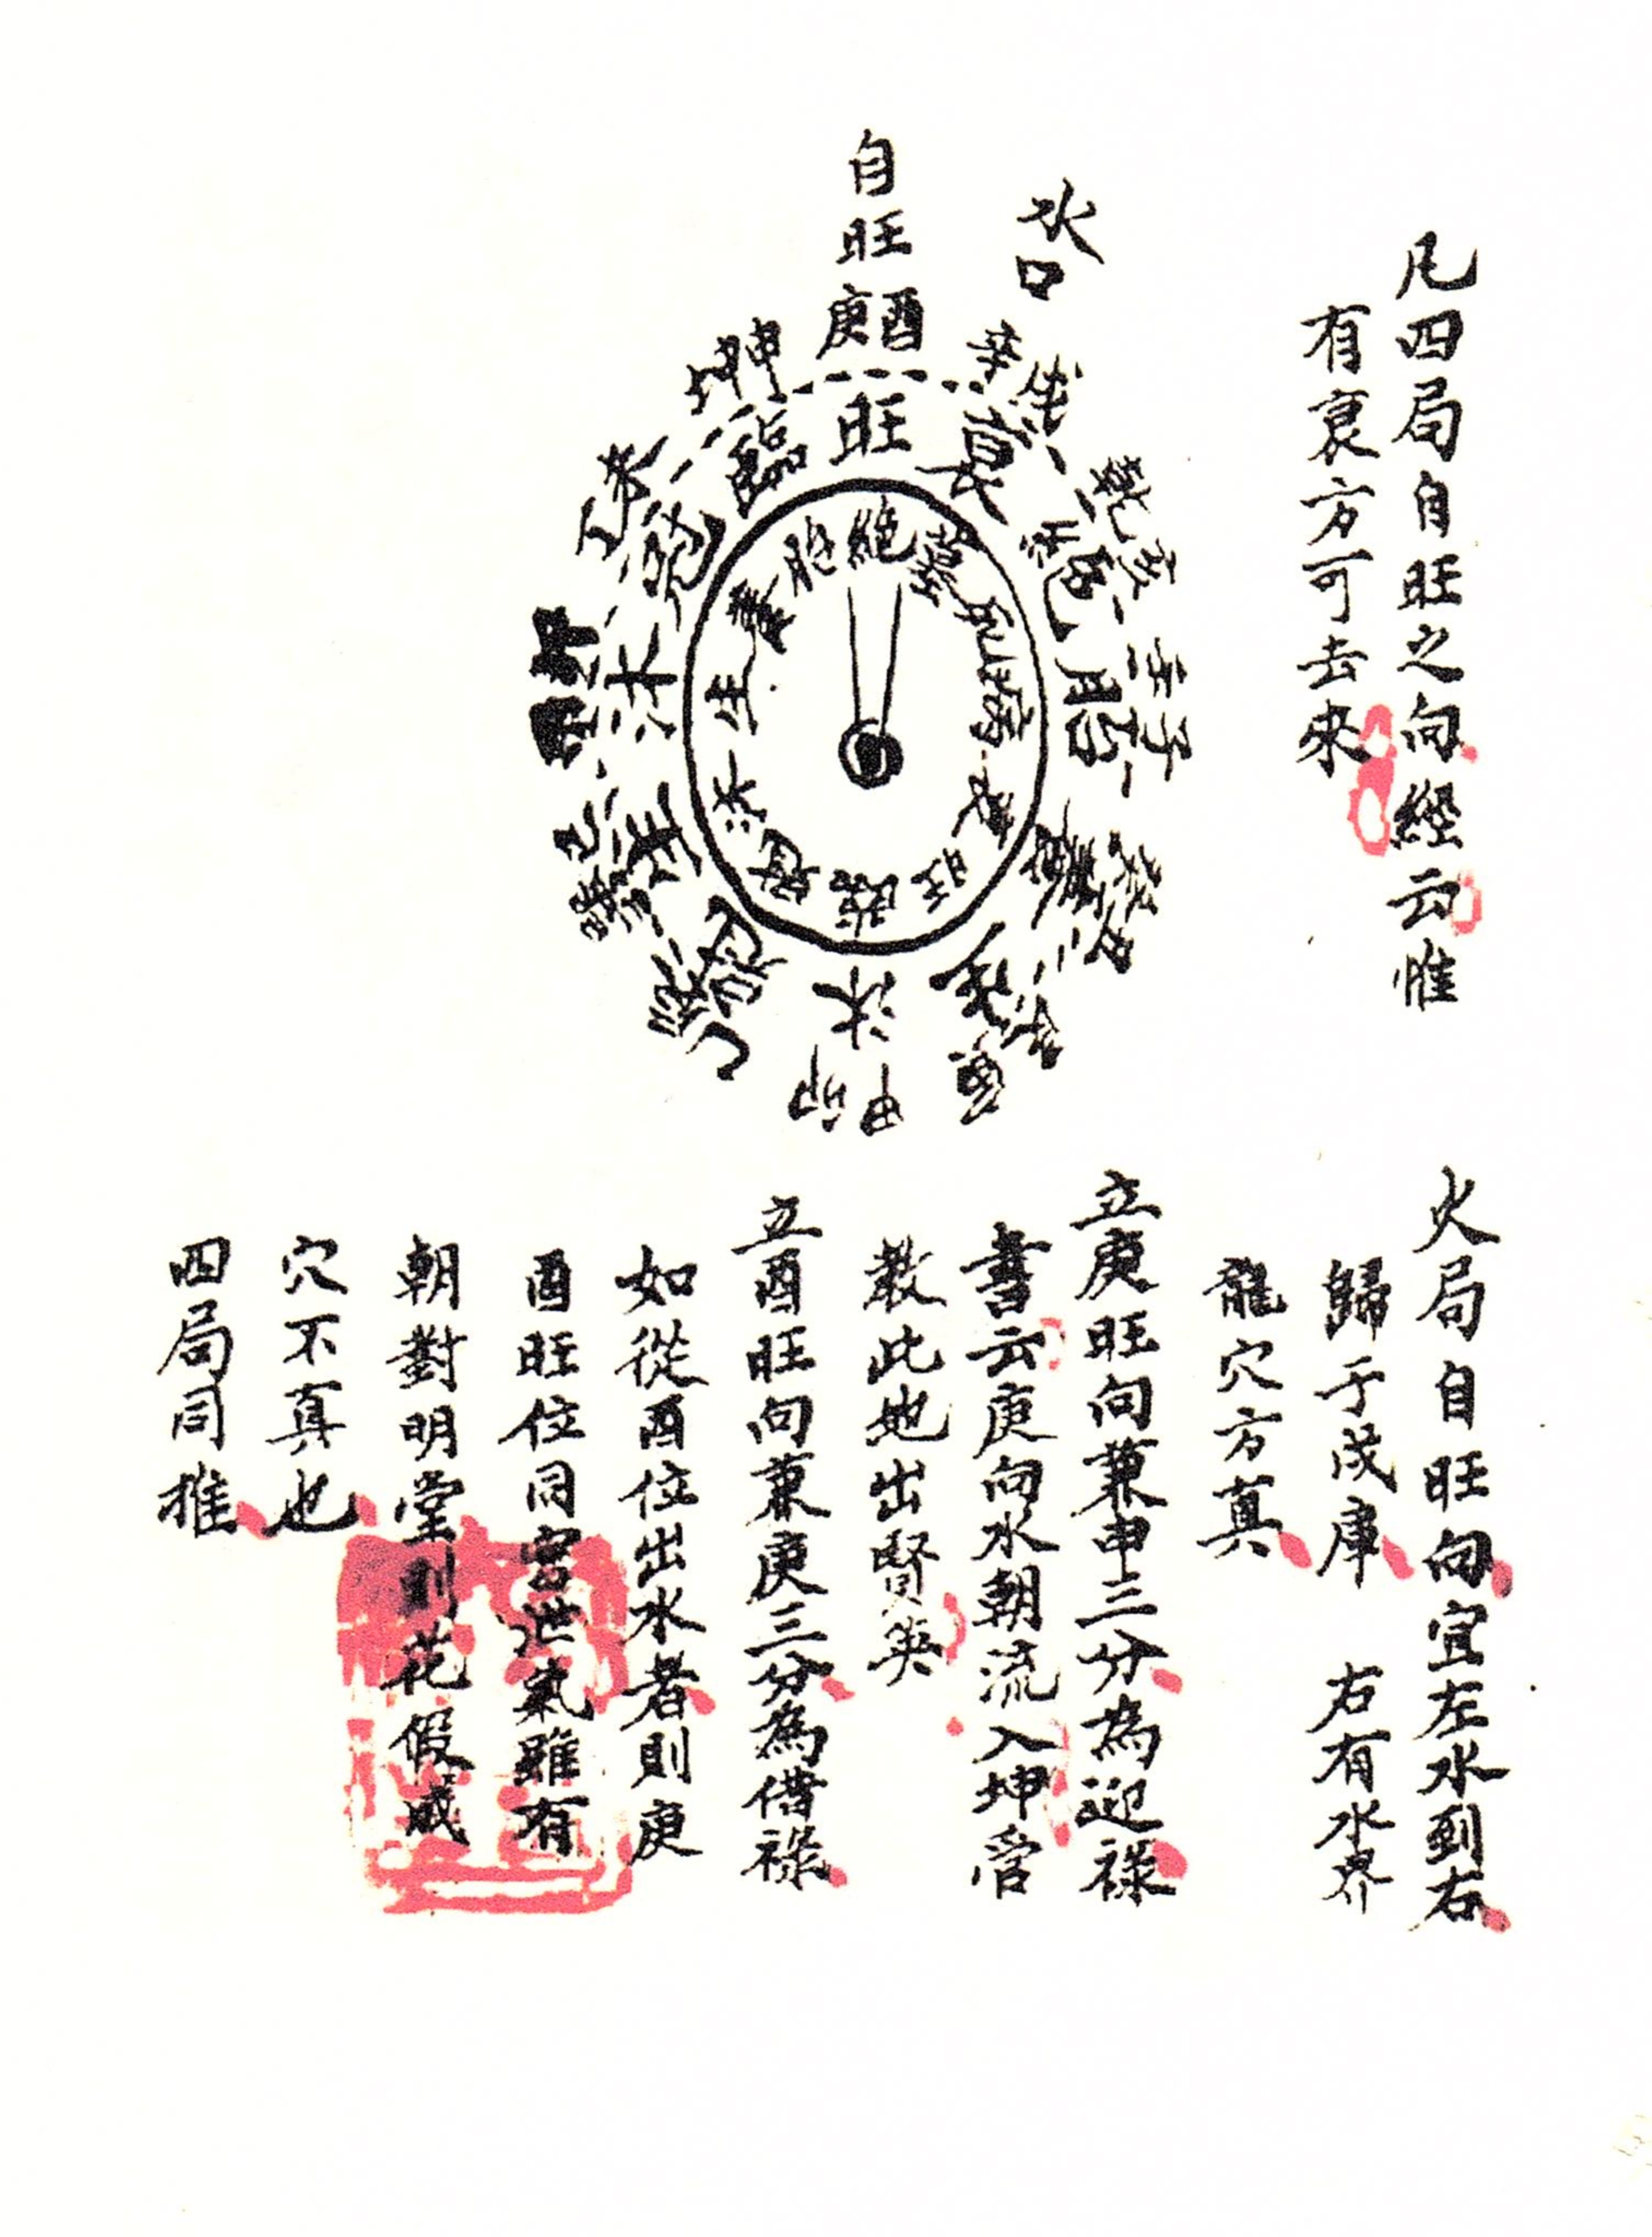 凡四局自旺之向經云惟
有衰方可去來
水口
自旺庚酉
辛戌
乾亥
壬子
癸丑
艮寅
甲卯
乙辰
巽巳
丙午
丁未
坤申
旺
衰
絶
胎
養
生
沐
冠
臨
絶
墓
死
病
衰
旺
臨
冠
沐
生
養
胎
火局自旺向宜左水到右
歸于戌庫 右有水界
龍穴方真
立庚旺向兼申三分為迎祿
書云庚向水朝流入坤管
教此地出賢英
立酉旺向兼庚三分為借祿
如從酉位出水者則庚
酉旺位同宮泄氣雖有
朝對明堂則花假咸
穴不真也
四局同推